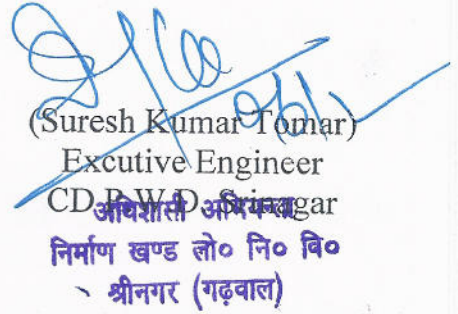 (Suresh Kumar Tomar)
Excutive Engineer
CD P.W.D. Srinagar
अधिशासी अभियन्ता
निर्माण खण्ड लो० नि० वि०
श्रीनगर (गढ़वाल)